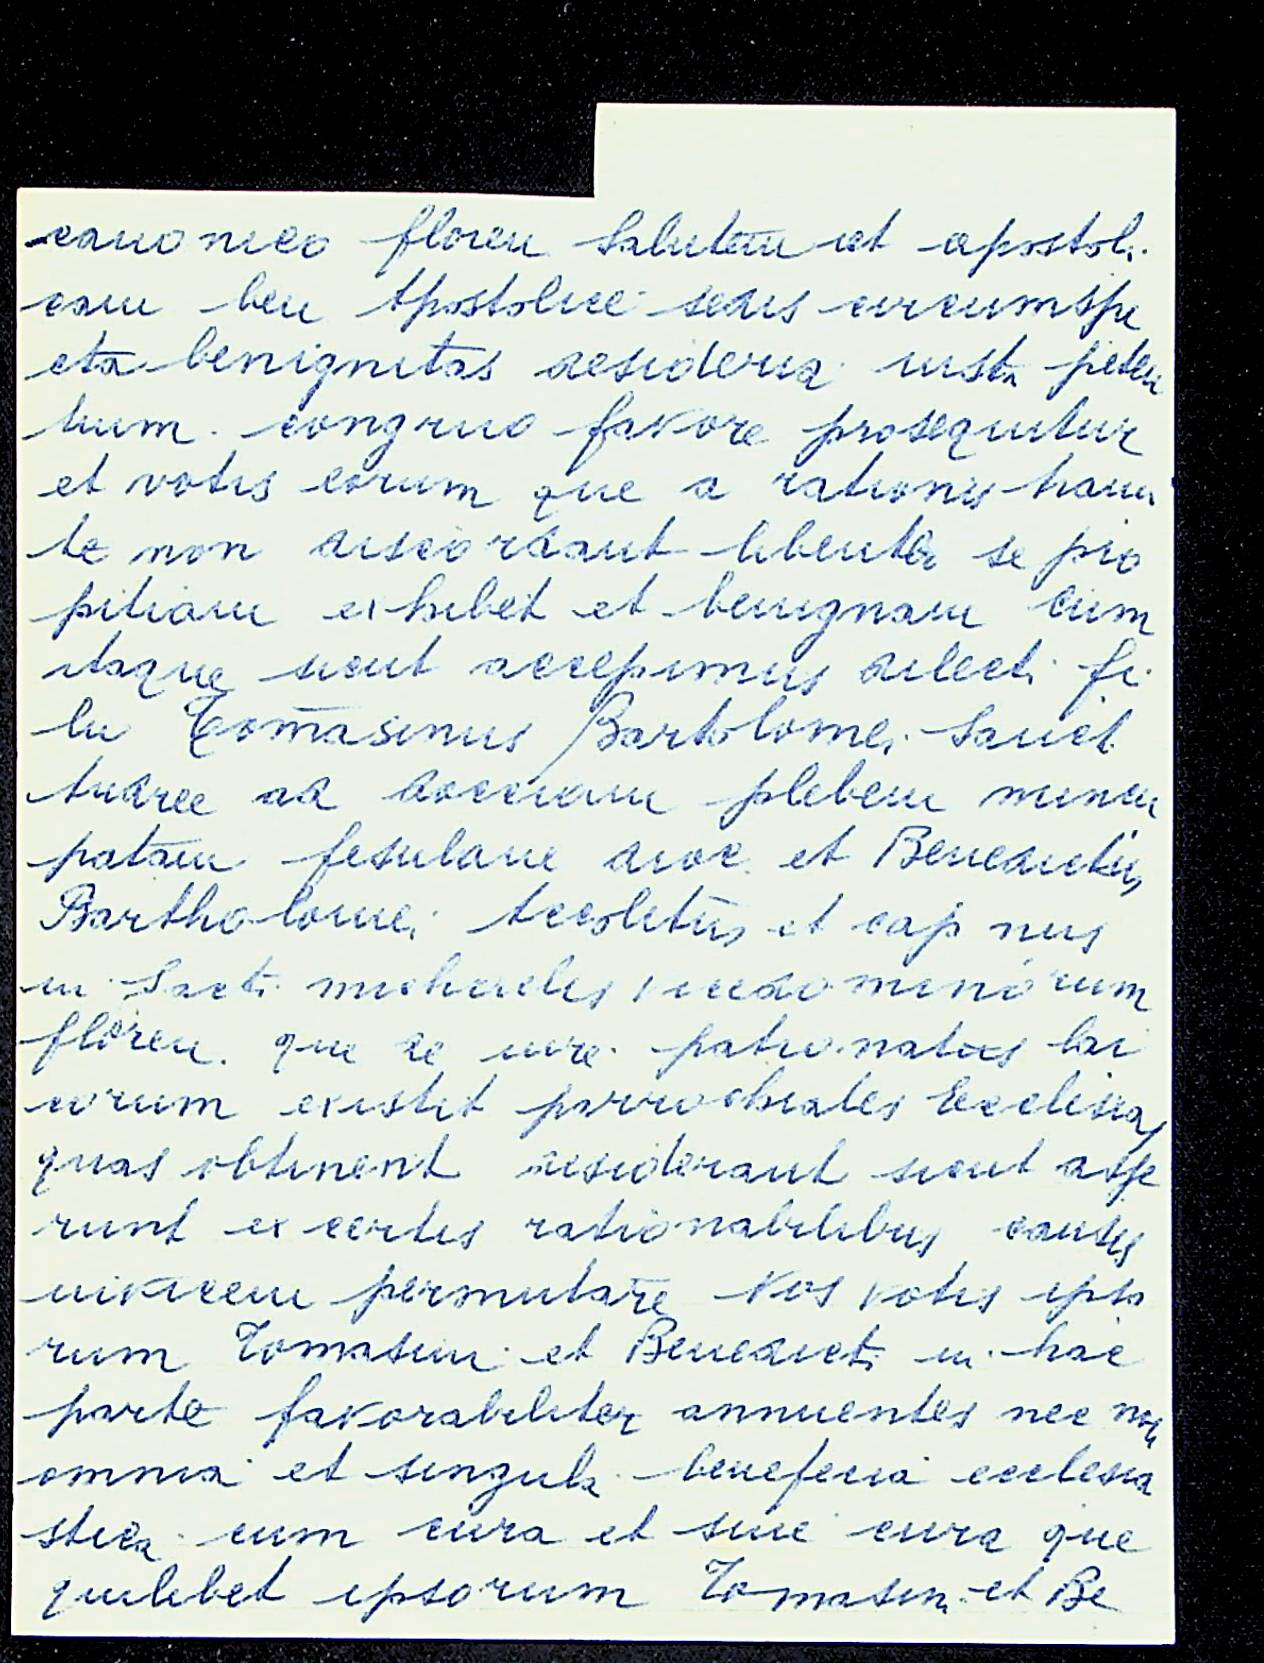 canonico floren Salutem et apostoli
cam ben Apostolice sedis circumspe
cta benignitas desideria iusta peten
tium congruo favore prosequitur
et votis eorum que a rationis trami
te non discordant libenter se pro
pitiam exhibet et benignam Cum
itaque sicut accepimus dilecti fi
lii Tomasinus Bartolomei Sancti
Andree ad docciam plebem nuncu
patam fesulane dioc. et Benedictus
Bartholomei Accolitus et cap nus
in Sacti michaelis vicedominorum
floren. que de iure patronatus lai
corum existit parrochiales Ecclesias
quas obtinent desiderant sicut asse
runt ex certis rationabilibus causis
invicem permutare Nos votis ipso
rum Tomasini et Benedicti in hac
parte favorabiliter annuentes nec non
omnia et singula beneficia ecclesia
stica cum cura et sine cura que
quilibet ipsorum Tomasini et Be